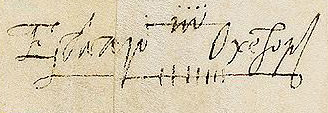 Edward Oxeford